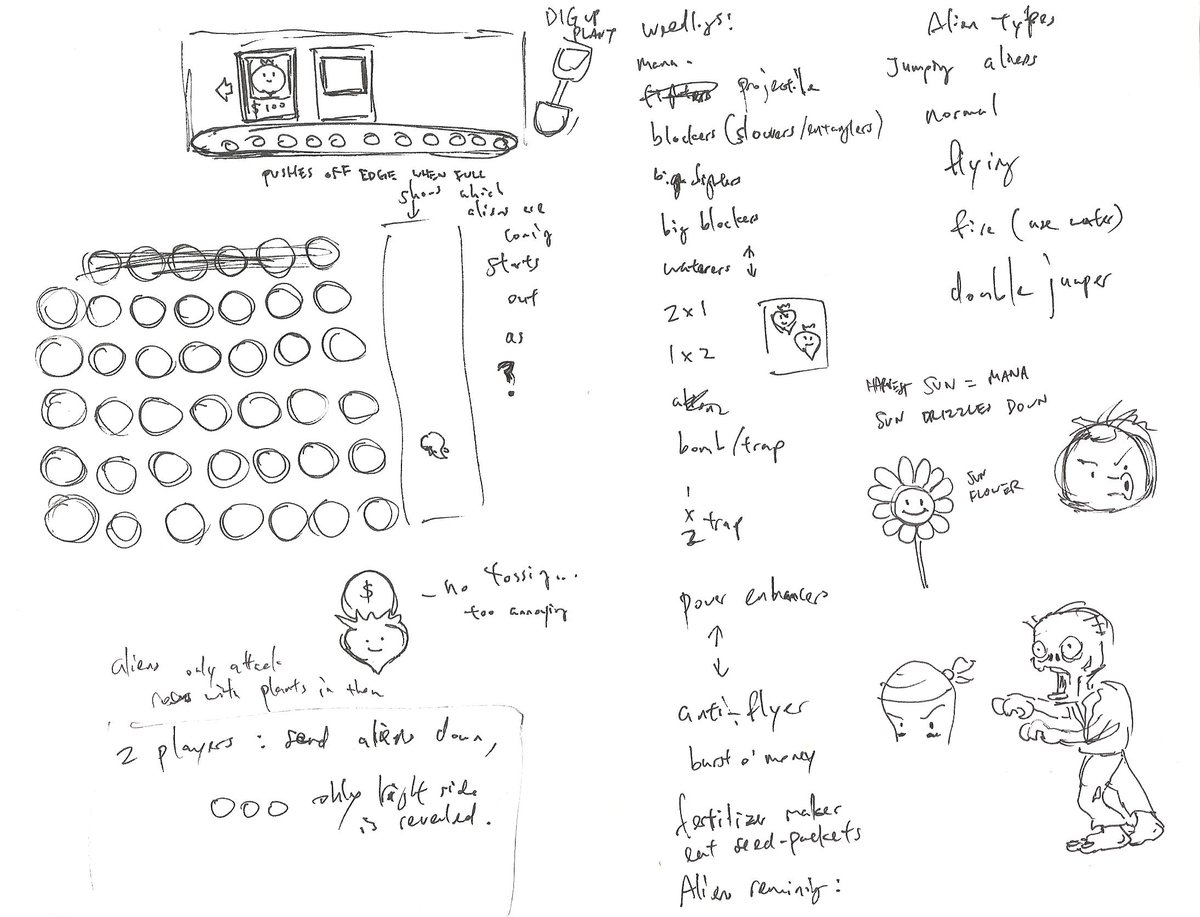 DIG UP
PLANT
$100
PUSHES OFF EDGE WHEN FULL
shows which
aliens are
coming
starts
out
as
?
$
- no tossing...
too annoying
aliens only attack
rows with plants in them
2 players: send aliens down,
only right side
is revealed.
weedlings!
mana -
projectile
blockers (slowers/entanglers)
big fighters
big blockers
waterers
2x1
1x2
bomb/trap
1
x trap
2
power enhancers
anti-flyer
burst o' money
fertilizer maker
eat seed-packets
Alien
Alien types
Jumping aliens
normal
flying
fire (use water)
double jumper
HARVEST SUN = MANA
SUN DRIZZLES DOWN
SUN
FLOWER